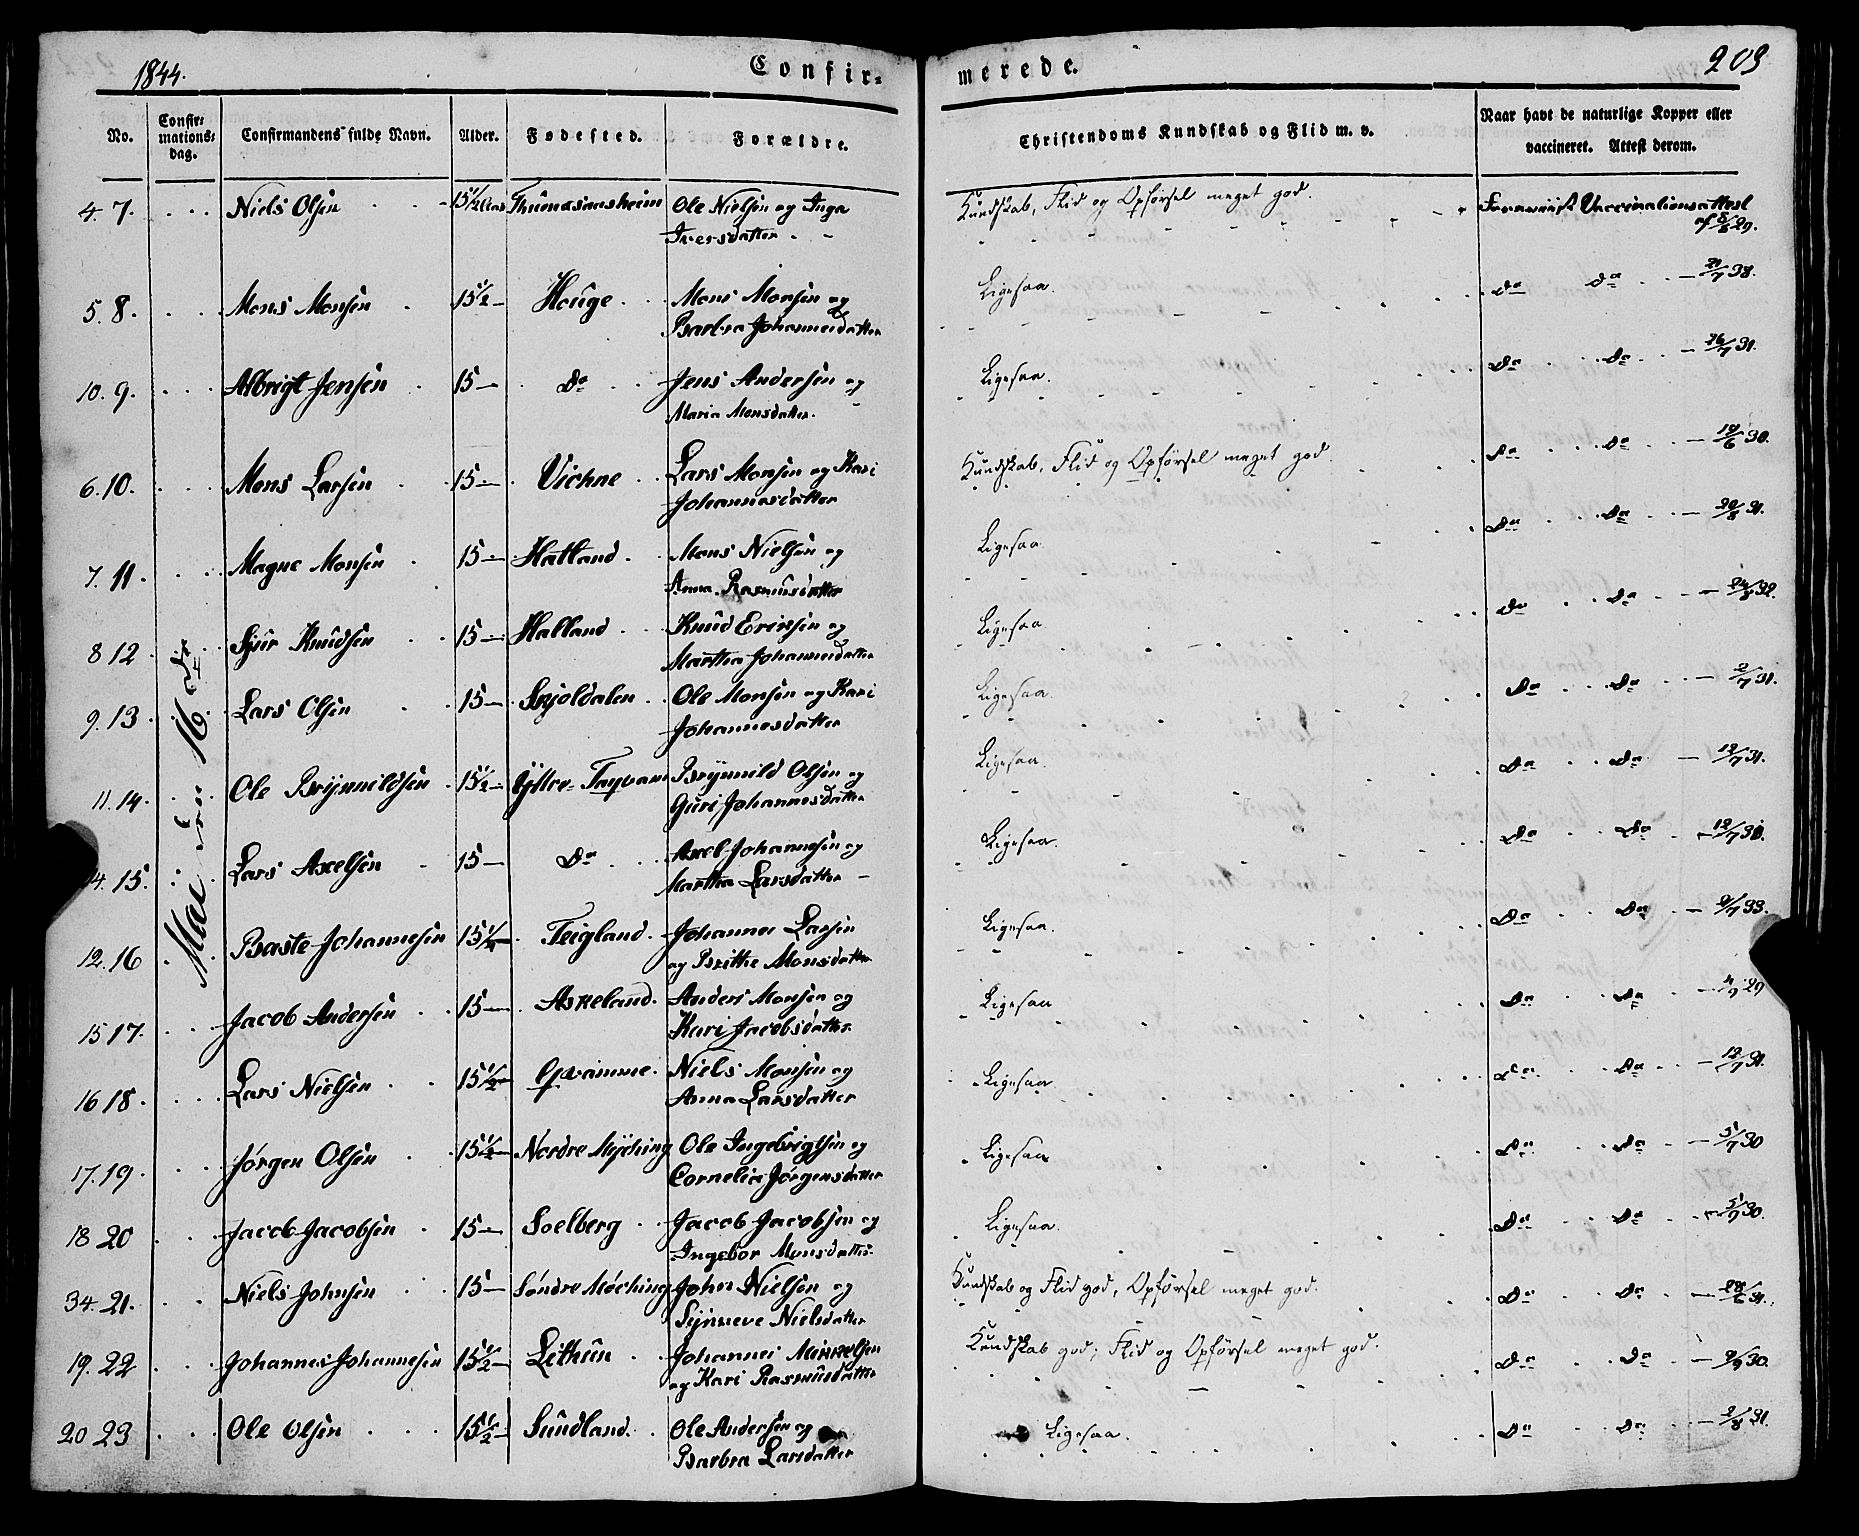 1844.
Confir-
merede.
209
No.
Confir-
mations-
dag.
Confirmandens fulde Navn.
Alder.
Fødested.
Forældre.
Christendoms Kundskab og Flid m. v.
Naar havt de naturlige Kopper eller
vaccineret. Attest derom.
Mai den 16de
4. 7. Niels Olsen 15 1/2 Ole Nielsen og Inga Kundskab, Flid og Opførsel meget god. Foreviist Vaccinationsattest
Iversdatter af 5/8 29.
5. 8. Mons Monsen 15 1/2 Houge Mons Monsen og Ligesaa. Do Do 21/7 38.
Barbra Johannesdatter
10. 9. Albrigt Jensen 15 Do Jens Andersen og Ligesaa. Do Do 26/7 31.
Maria Monsdatter.
6. 10. Mons Larsen 15 Vichne Lars Monsen og Kari Kundskab, Flid og Opførsel meget god Do Do 18/6 30.
Johannesdatter
7. 11. Magne Monsen 15 Hatland Mons Nielsen og Ligesaa Do Do 20/8 31.
Anna Rasmusdatter
8 12 Sjur Knudsen 15 Halland Knud Eriksen og Ligesaa Do Do 24/8 32.
Martha Johannesdatter
9. 13 Lars Olsen 15 Skjoldalen Ole Monsen og Kari Ligesaa Do Do 2/7 31.
Johannesdatter
11. 14. Ole Brynnildsen 15 1/2 Brynnild Olsen og Ligesaa Do Do 12/7 31.
Guri Johannesdatter
14. 15. Lars Axelsen 15 Do Axel Johannesen og Ligesaa. Do Do 12/7 30.
Martha Larsdatter
12. 16 Baste Johannesen 15 1/4 Teigland Johannes Larsen Ligesaa. Do Do 9/7 33.
og Brithe Monsdatter
15 17. Jacob Andersen 15 Askeland. Anders Monsen og Ligesaa Do Do 4/9 29
Kari Jacobsdatter
16 18. Lars Nielsen 15 1/2 Qvamme. Niels Monsen og Ligesaa Do Do 12/7 31.
Anna Larsdatter
17. 19. Jørgen Olsen 15 1/2 Nordre Myching Ole Ingebrigtsen og Ligesaa Do Do 5/7 30
Cornelia Jørgensdatter
18 20 Jacob Jacobsen 15 Soelberg Jacob Jacobsen og Ligesaa. Do Do 5/9 30.
Ingebor Monsdatter
34. 21. Niels Johnsen 15 Søndre Møching John Nielsen og Kundskab og Flid god, Opførsel meget god. Do Do 28/6 31.
Synneve Nielsdatter
19. 22 Johannes Johannesen 15 1/2 Lethun Johannes Mikkelsen Kundskab god; Flid og Opførsel meget god. Do Do 9/9 30.
og Kari Rasmusdatter
20 23 Ole Olsen 15 1/2 Sundland. Ole Andersen og Ligesaa. Do Do 2/8 31.
Barbra Larsdatter